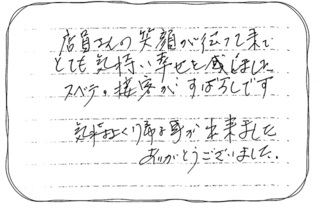 店員さんの笑顔が伝って来て
とても気持い幸せを感じました
スベテ。接客がすばらしです
気持よく帰る事が出来ました
ありがとうございました。